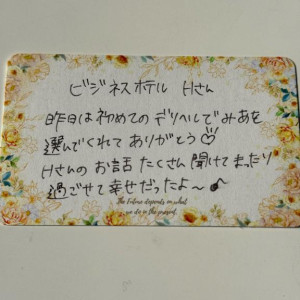 ビジネスホテル Hさん
昨日は初めてのデリヘルでみあを
選んでくれてありがとう♡
Hさんのお話たくさん聞けてまったり
過ごせて幸せだったよ〜♪
The Future depends on what
we do in the present.